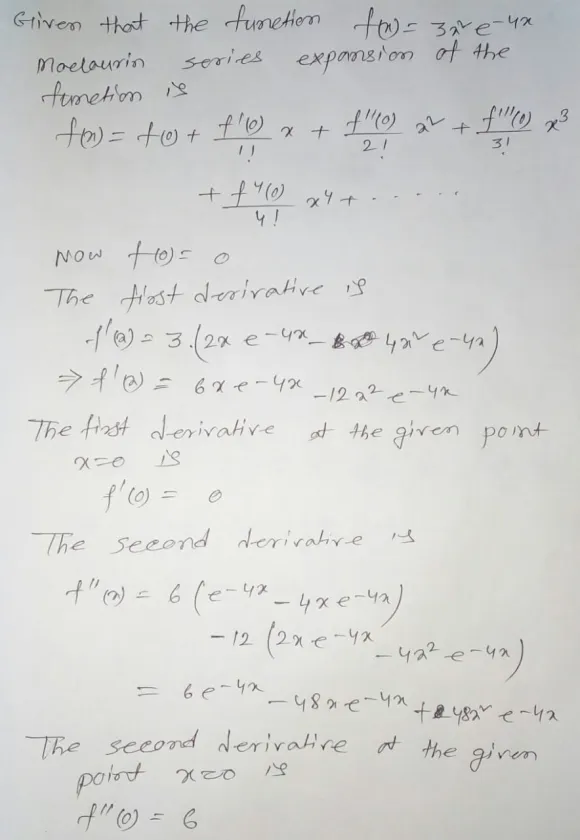 Given that the function f(x) = 3x² e^-4x
Maclaurin series expansion of the
function is
f(x) = f(0) + f'(0)/1! x + f''(0)/2! x² + f'''(0)/3! x³
+ f⁴(0)/4! x⁴ + . . . . . .
Now f(0) = 0
The first derivative is
f'(x) = 3.(2x e^-4x - 4x² e^-4x)
⇒ f'(x) = 6x e^-4x - 12x² e^-4x
The first derivative at the given point
x=0 is
f'(0) = 0
The second derivative is
f''(x) = 6 (e^-4x - 4x e^-4x)
- 12 (2x e^-4x - 4x² e^-4x)
= 6e^-4x - 48x e^-4x + 48x² e^-4x
The second derivative at the given
point x=0 is
f''(0) = 6